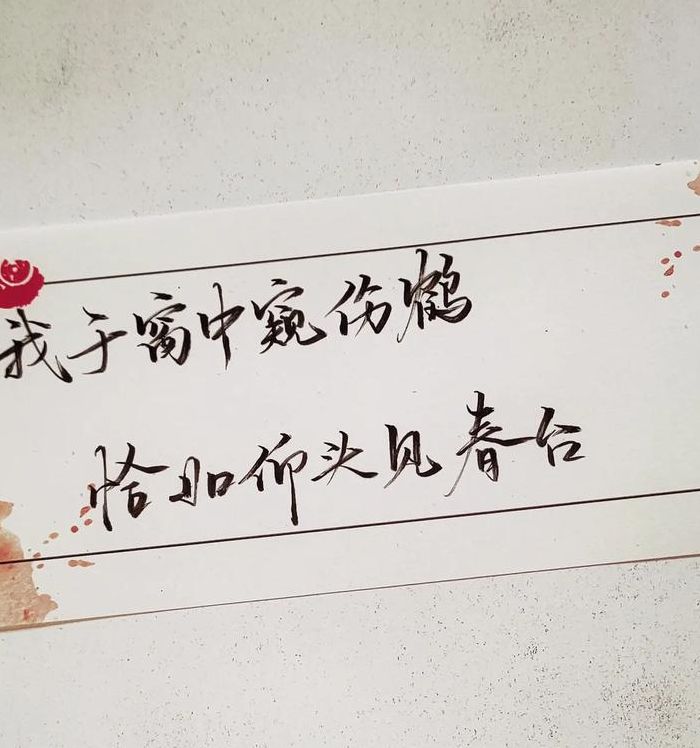 我于窗中窥伤鹤
恰如仰头见春台